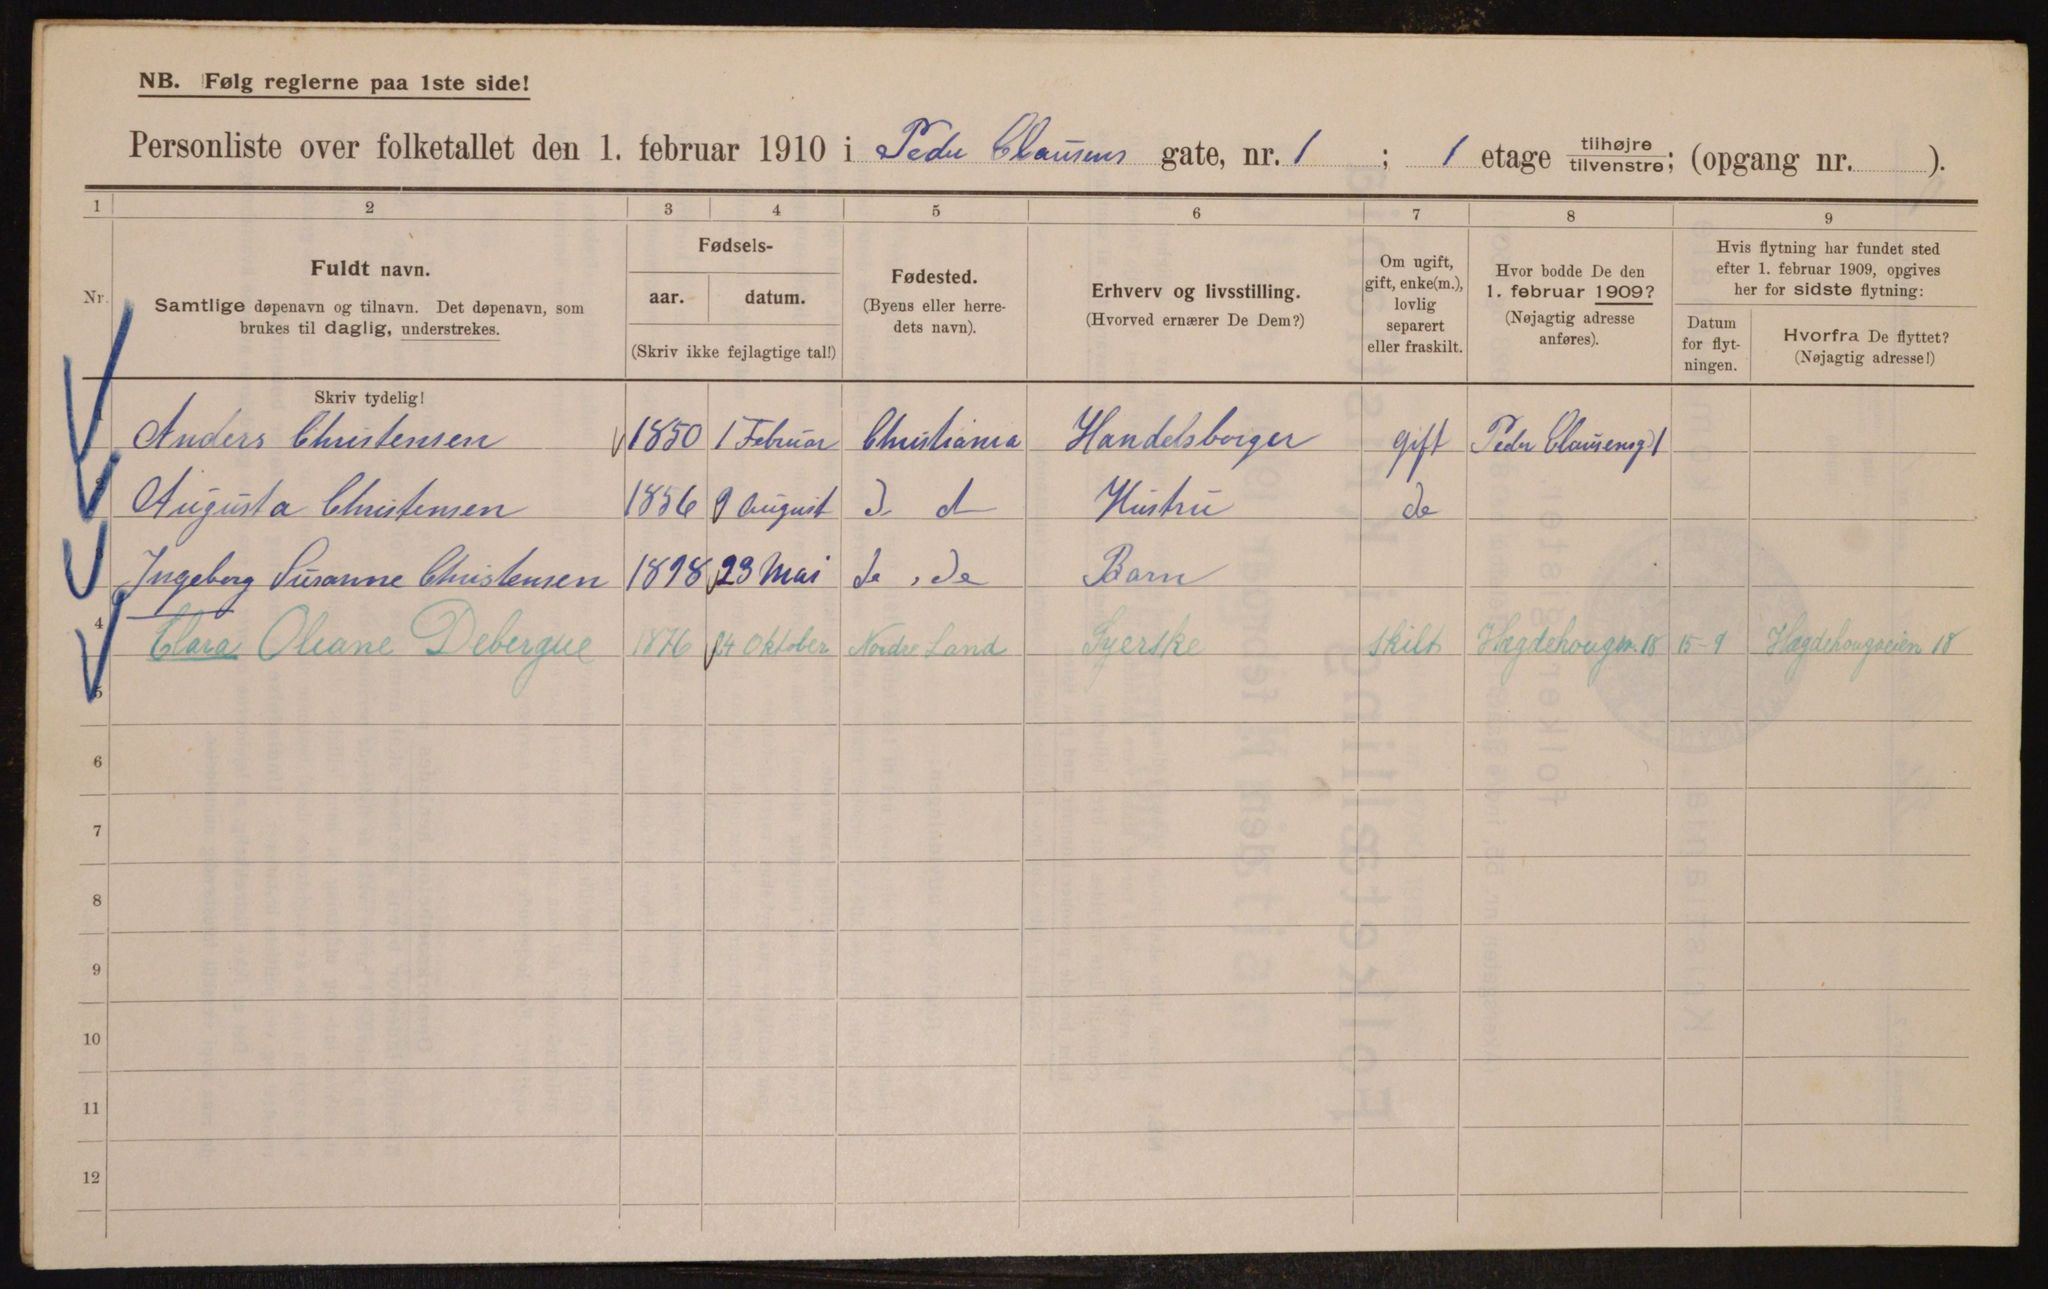 NB. Følg reglerne paa 1ste side!
Personliste over folketallet den 1. februar 1910 i Peder Clausens gate, nr. 1 ; 1 etage tilhøjre/tilvenstre; (opgang nr. ).
1 2 3 4 5 6 7 8 9
Nr.
Fuldt navn.
Samtlige døpenavn og tilnavn. Det døpenavn, som
brukes til daglig, understrekes.
Fødsels-
aar. datum.
(Skriv ikke fejlagtige tal!)
Fødested.
(Byens eller herre-
dets navn).
Erhverv og livsstilling.
(Hvorved ernærer De Dem?)
Om ugift,
gift, enke(m.),
lovlig
separert
eller fraskilt.
Hvor bodde De den
1. februar 1909?
(Nøjagtig adresse
anføres).
Hvis flytning har fundet sted
efter 1. februar 1909, opgives
her for sidste flytning:
Datum
for flyt-
ningen.
Hvorfra De flyttet?
(Nøjagtig adresse!)
Skriv tydelig!
Anders Christensen 1850 1 Februar Christiania Handelsborger gift Peder Clausensg 1
Augusta Christensen 1856 9 August d d Hustru de
Ingeborg Susanne Christensen 1898 23 Mai de de Barn
4 Clara Oleane Debergue 1876 24 Oktober Nordre Land Syerske skilt Hægdehougsv. 18 15-9 Hægdehougveien 18
5
6
7
8
9
10
11
12